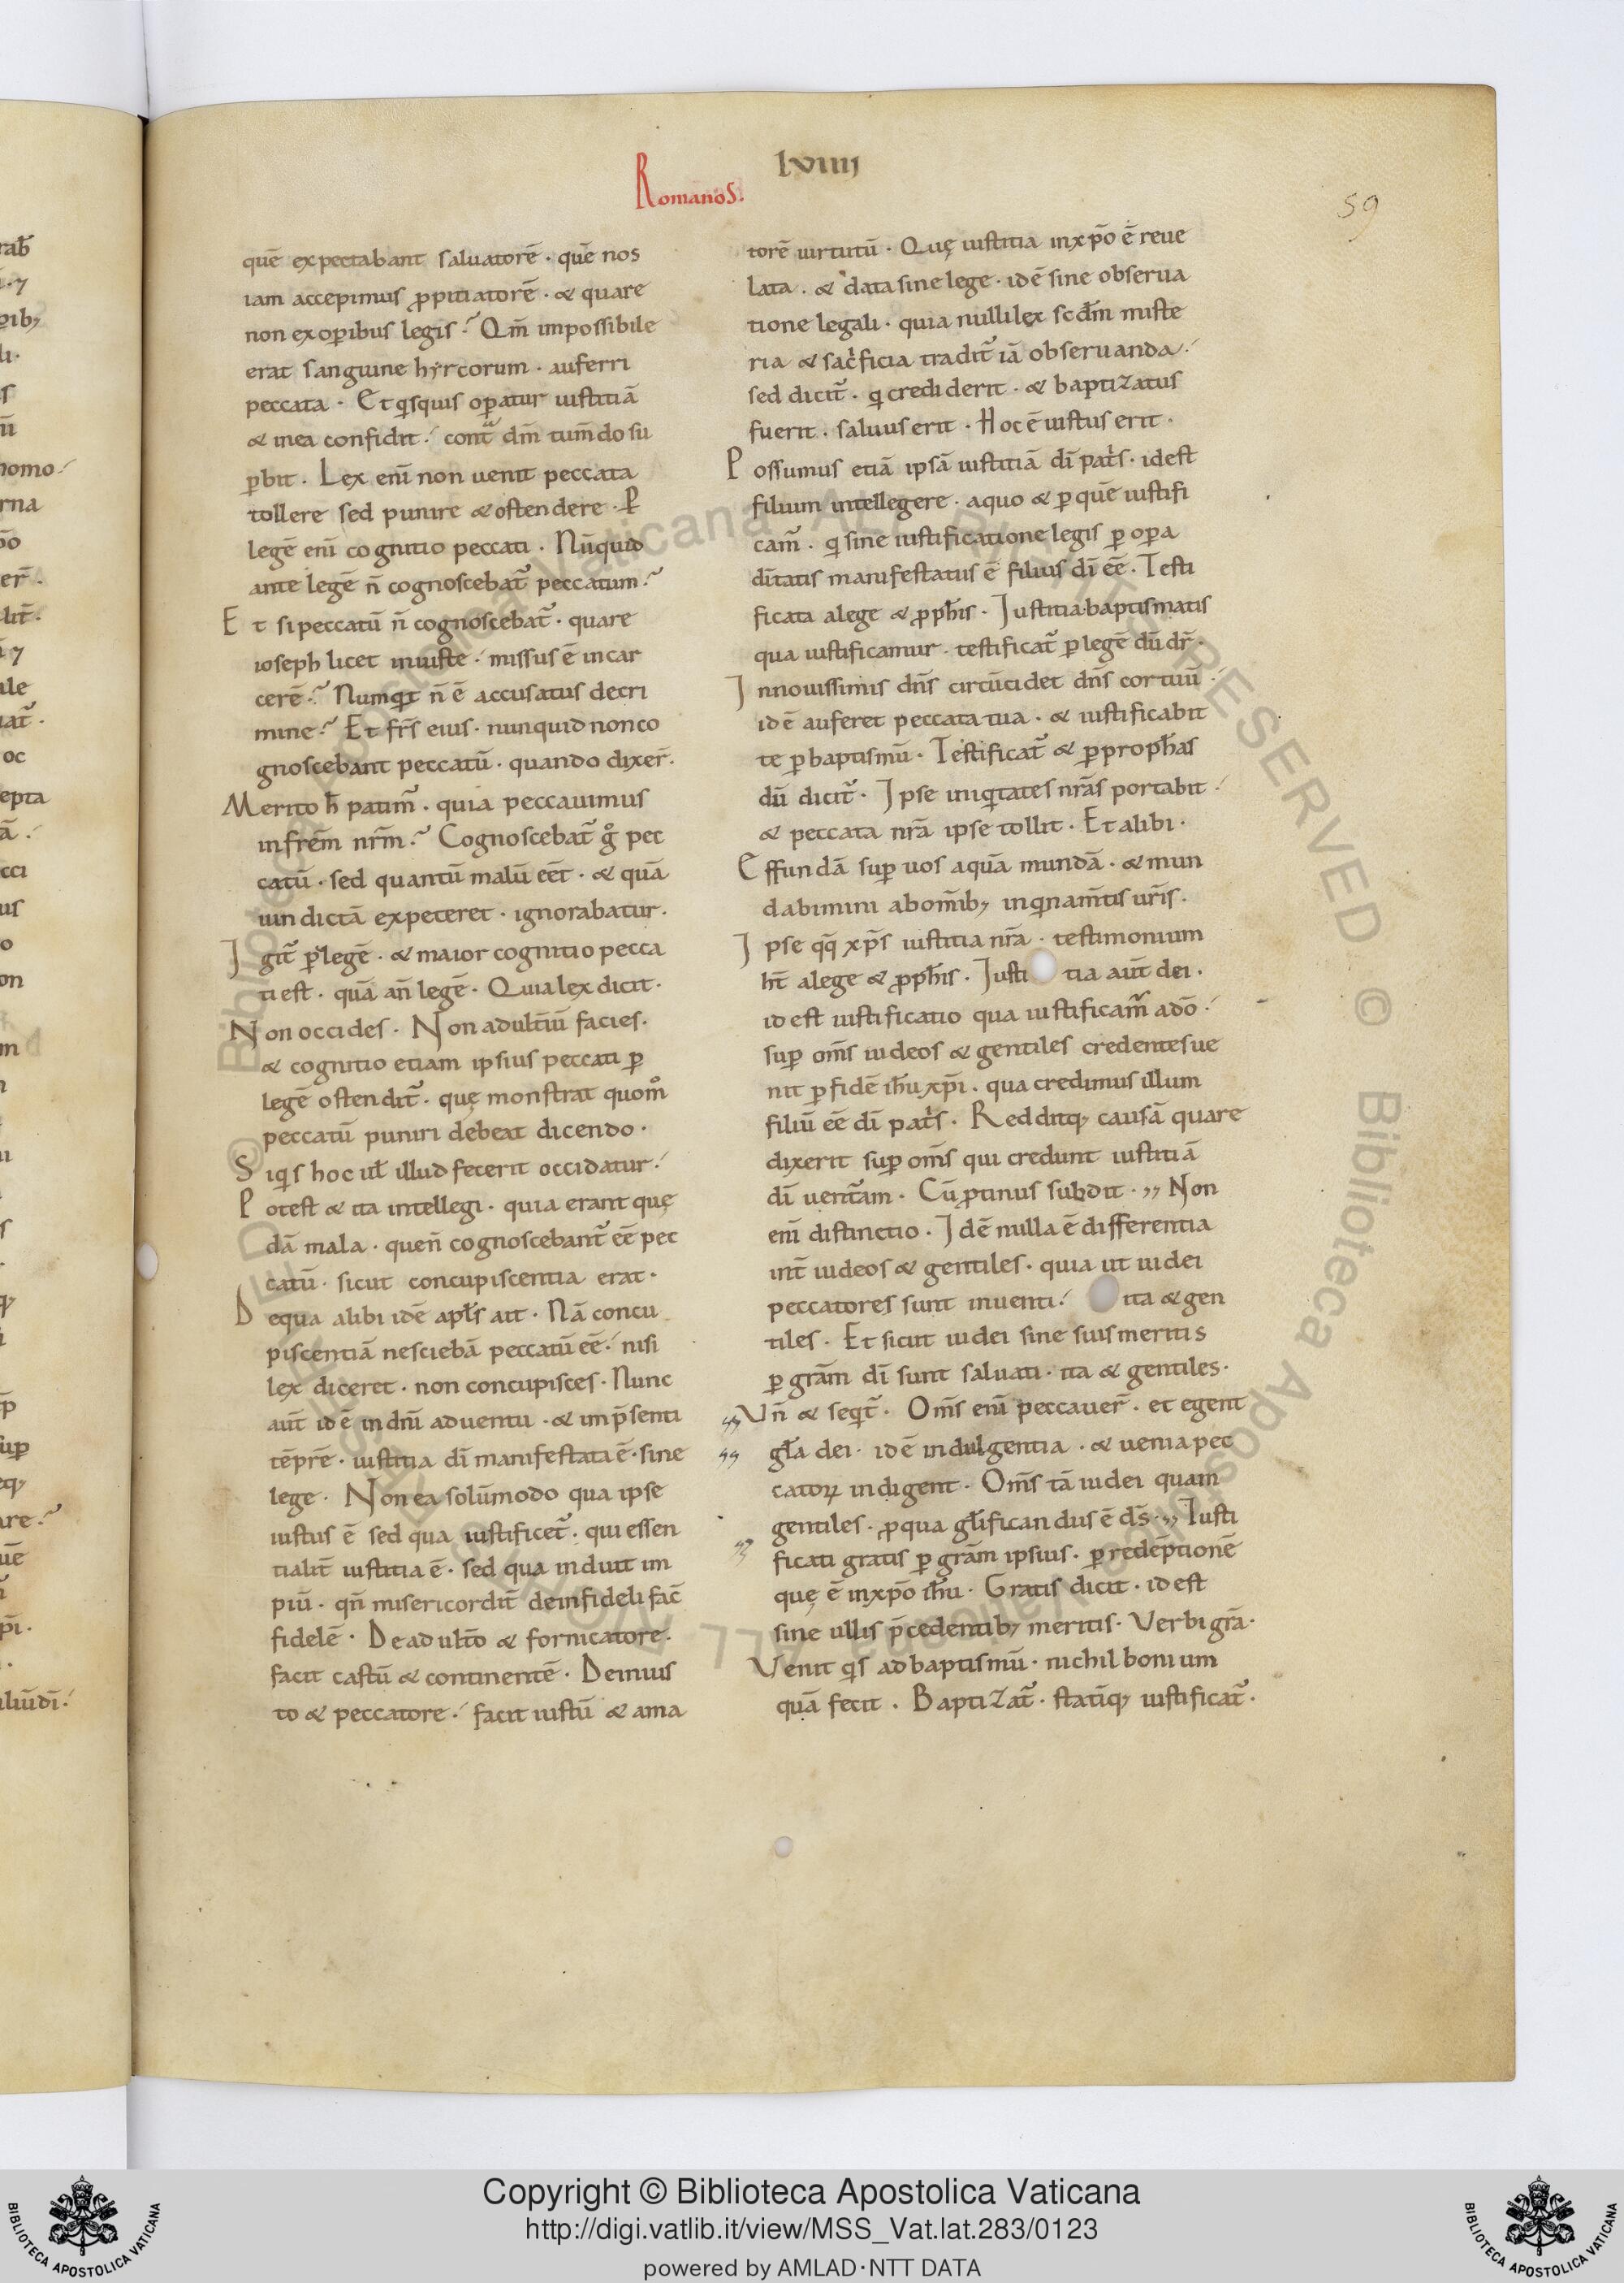 lviiij
Romanos.
59
quē expectabant saluatorē · quē nos
iam accepimus ꝓpitiatorē · & quare
non exoꝑibus legis? Qm̄ impossibile
erat sanguine hyrcorum · auferri
peccata · Et qisquis oꝑatur iustitiā
& inea confidit · contͣ dm̄ tum̄do su
ꝑbit · Lex eni̅ non uenit peccata
tollere sed punire & ostendere · Ꝑ
legē eni̅ cognitio peccati · Nūquid
ante legē n̄ cognoscebat̄ peccatum?
Et si peccatū n̄ cognoscebat̄ · quare
ioseph licet iniuste · missus ē in car
cerē? Numqit n̄ ē accusatus decri
mine? Et fr̄s eius · nunquid non co
gnoscebant peccatū · quando dixer̄ ·
Merito h̄ patim̄ · quia peccauimus
infrēm nr̄m? Cognoscebat̄ g̊ pec
catū · sed quantū malū eēt · & quā
uindictā expeteret · ignorabatur ·
Igit̄ ꝑ legē · & maior cognitio pecca
ti est · quā an̄ legē · Quia lex dicit ·
Non occides · Non adult̄iū facies ·
& cognitio etiam ipsius peccati ꝑ
legē ostendit̄ · quę monstrat quom̊
peccatū puniri debeat dicendo ·
Siqis hoc ul̄ illud fecerit occidatur ·
Potest & ita intellegi · quia erant quę
dā mala · quen̄ cognoscebant̄ eē pec
catū · sicut concupiscentia erat ·
Dequa alibi idē apl̄s ait · Nā concu
piscentiā nesciebā peccatū eē · nisi
lex diceret · non concupisces · Nunc
aut̄ idē indn̄i aduentu · & inp̄senti
tēpr̄e · iustitia dī manifestata ē · sine
lege · Non ea solūmodo qua ipse
iustus ē sed qua iustificet̄ · qui essen
tialit̄ iustitia ē · sed qua induit im
piū · qn̄ misericordit̄ deinfideli fac̄
fidelē · De adult̄o & fornicatore ·
facit castū & continentē · Deinius
to & peccatore · facit iustū & ama
torē uirtutū · Quę iustitia inxp̄o ē reue
lata · & data sine lege · idē sine obserua
tione legali · quia nulli lex scd̄m miste
ria & sacͥficia tradit̄ iā obseruanda ·
sed dicit̄ · qi crediderit · & baptizatus
fuerit · saluus erit · Hoc ē iustus erit ·
Possumus etiā ipsā iustitiā dī patͥs · idest
filium intellegere · aquo & ꝑ quē iustifi
cam̄ · qi sine iustificatione legis ꝑ oꝑa
dīitatis manifestatus ē filius dī eē · Testi
ficata alege & ꝓph̄is · Iustitia baptismatis
qua iustificamur · testificat̄ ꝑ legē dū dr̄ ·
Innouissimis dn̄s circūcidet dn̄s cor tuū ·
idē auferet peccata tua · & iustificabit
te ꝑ baptismū · Testificat̄ & ꝑ proph̄as
dū dicit̄ · Ipse iniqitates nr̄as portabit ·
& peccata nr̄a ipse tollit · Et alibi ·
Effundā suꝑ uos aquā mundā · & mun
dabimini abom̄ib; inqinam̄tis ur̄is ·
Ipse qq̄ xp̄s iustitia nr̄a · testimonium
ht̄ alege & ꝓph̄is · Iusti tia aut̄ dei ·
id est iustificatio qua iustificam̄ adō ·
suꝑ om̄s iudeos & gentiles credentes ue
nit ꝑ fidē ih̄u xp̄i · qua credimus illum
filiū eē dī patͥs · Redditq; causā quare
dixerit suꝑ om̄s qui credunt iustitiā
dī uent̄am · Cū ꝓtinus subdit · ,, Non
eni̅ distinctio · Idē nulla ē differentia
int̄ iudeos & gentiles · quia ut iudei
peccatores sunt inuenti · ita & gen
tiles · Et sicut iudei sine suis meritis
ꝑ grām dī sunt saluati · ita & gentiles ·
Vn̄ & seqit̄ · Om̄s eni̅ peccauer̄ · et egent
gl̄a dei · idē indulgentia · & uenia pec
catoꝝ indigent · Om̄s tā iudei quam
gentiles · ꝓ qua gl̄ificandus ē ds̄ · ,, Iusti
ficati gratis ꝑ grām ipsius · ꝑ redēptionē
quę ē inxp̄o ih̄u · Gratis dicit · id est
sine ullis p̄cedentib; meritis · Verbi grā ·
Venit qis ad baptismū · nichil boni um
quā fecit · Baptizat̄ · statīq; iustificat̄ ·
Copyright © Biblioteca Apostolica Vaticana
http://digi.vatlib.it/view/MSS_Vat.lat.283/0123
powered by AMLAD·NTT DATA
BIBLIOTECA APOSTOLICA VATICANA
BIBLIOTECA APOSTOLICA VATICANA